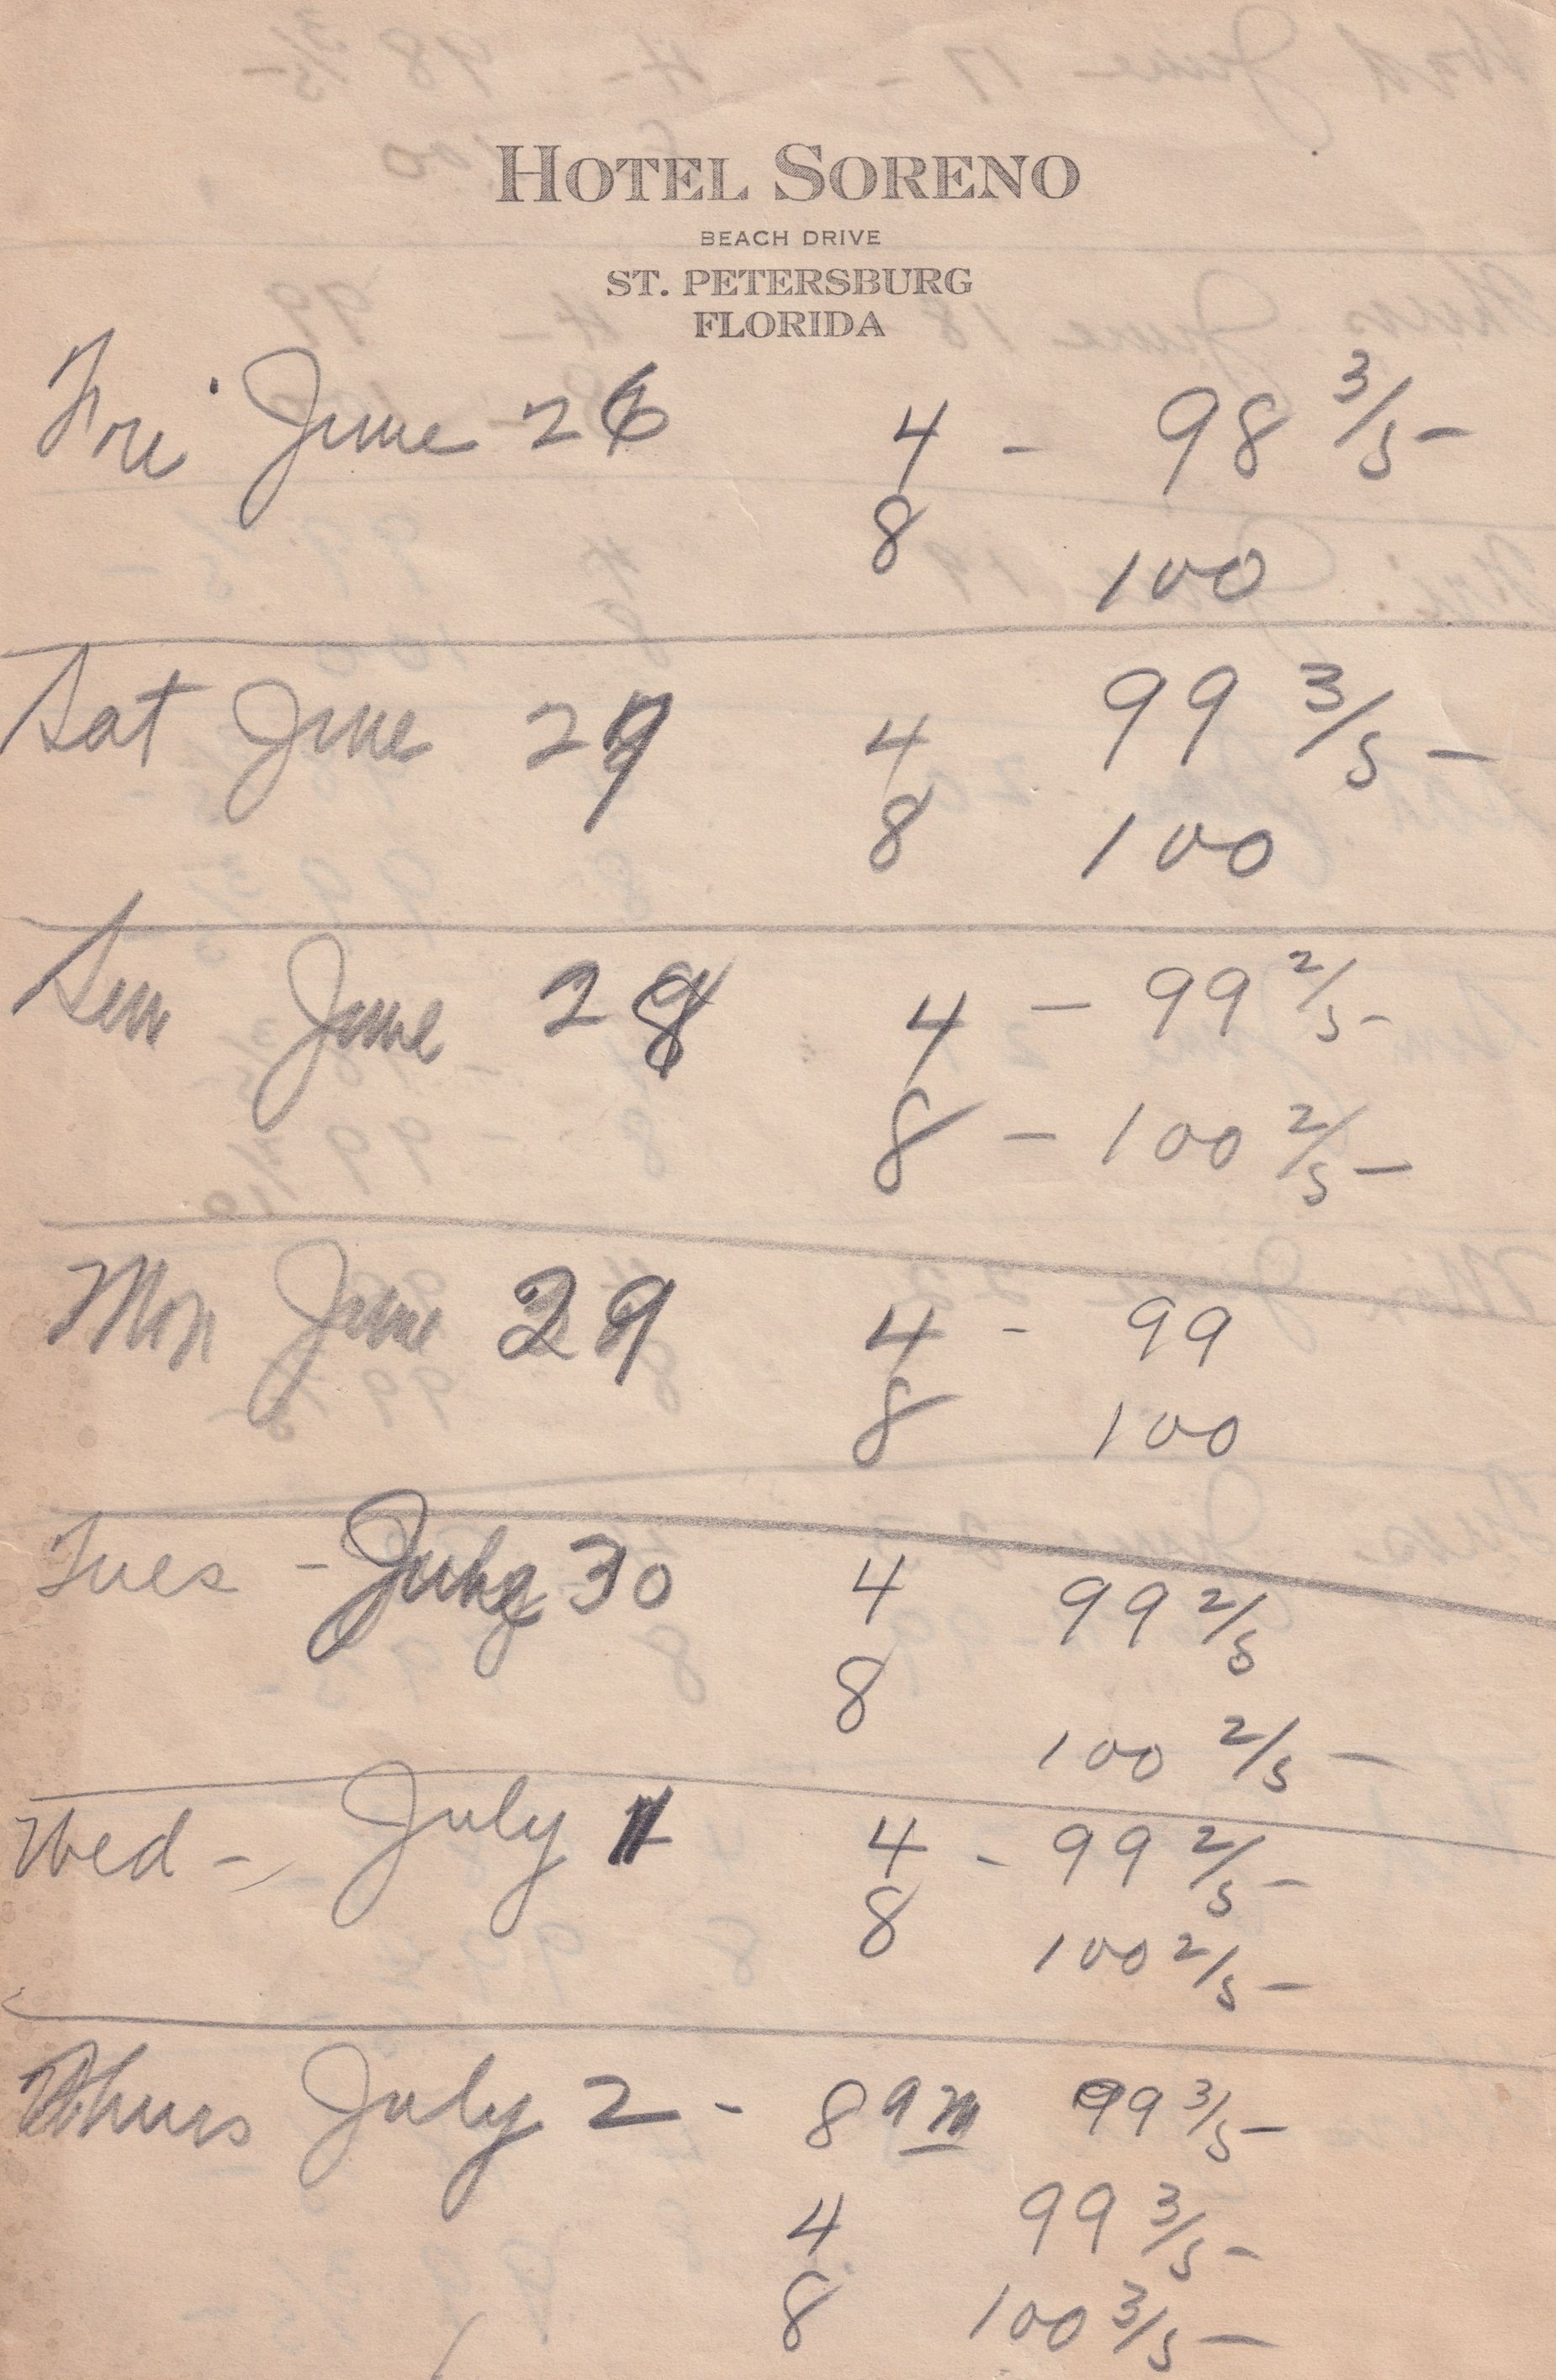 HOTEL SORENO
BEACH DRIVE
ST. PETERSBURG
FLORIDA
Fri June 26 4 - 98 3/5 -
8 100
Sat June 27 4 99 3/5 -
8 100
Sun June 28 4 - 99 2/5 -
8 - 100 2/5 -
Mon June 29 4 - 99
8 100
Tues - June 30 4 99 2/5
8 100 2/5 -
Wed - July 1 4 - 99 2/5 -
8 100 2/5 -
Thurs July 2 - 8 am 99 3/5 -
4 99 3/5 -
8 100 3/5 -